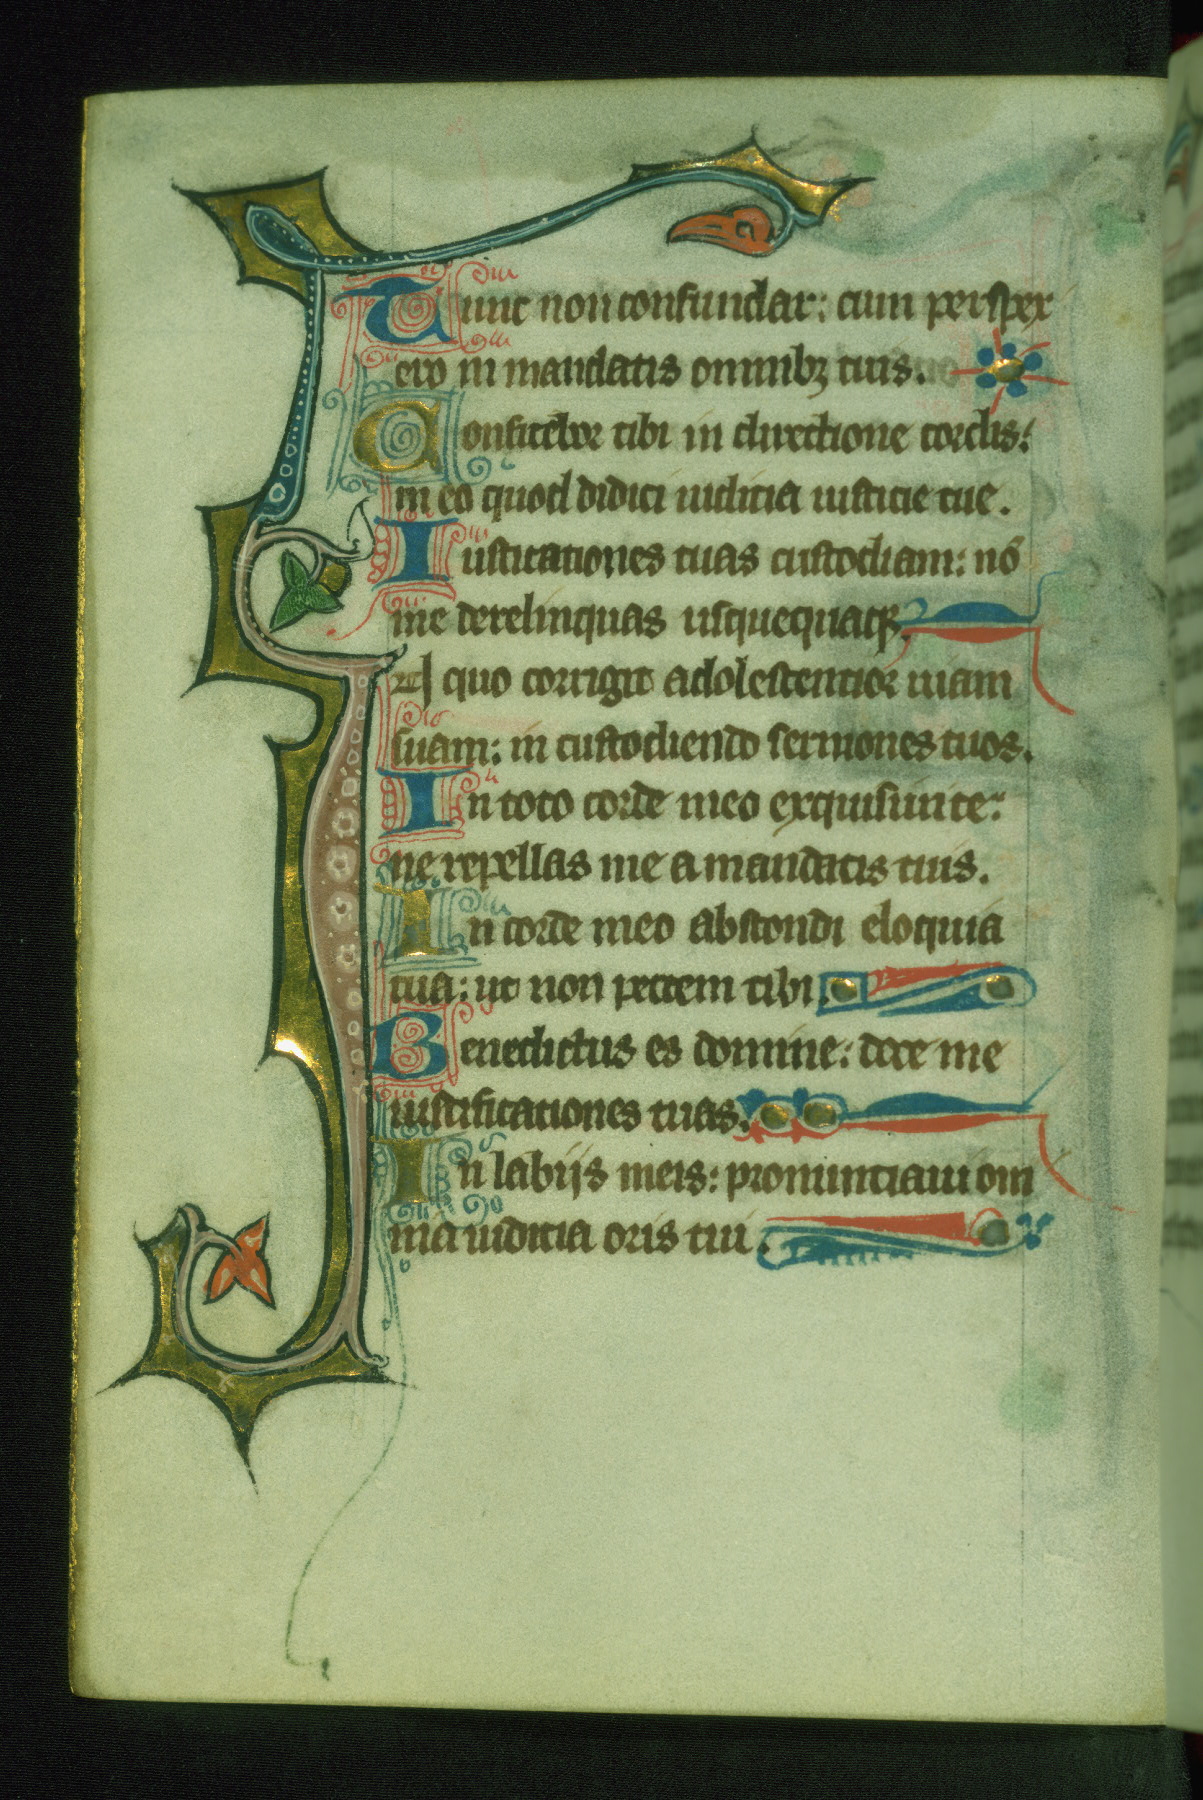 Tunc non confundar: cum perspex
ero in mandatis omnibꝫ tuis.
Confitebor tibi in directione cordis:
in eo quod didici iudicia iusticie tue.
Iustitationes tuas custodiam: nō
me derelinquas usquequaqꝫ.
A quo corrigit adolescentior uiam
suam: in custodiendo sermones tuos.
In toto corde meo exquisiui te:
ne repellas me a mandatis tuis.
In corde meo abscondi eloquia
tua: ut non peccem tibi.
Benedictus es domine: doce me
iustificationes tuas.
In labijs meis: pronunciaui om
nia iudicia oris tui.